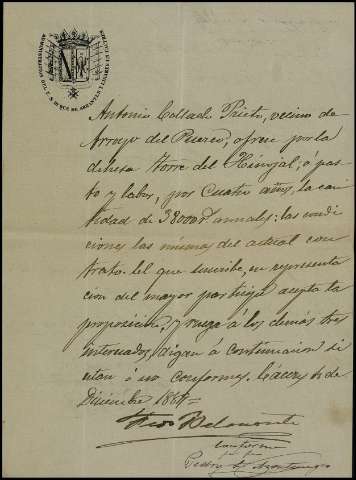 ADMINISTRACION DEL E. S. DUQUE DE ABRANTES Y LINARES EN CACERES
Antonio Collado Prieto, vecino de
Arroyo del Puerco, ofrece por la
dehesa Torre del Hinojal, á pas
to y labor, por cuatro años, la can
tidad de 38000 r.s anuales: las condi
ciones las mismas del actual con
trato. el que suscribe, en representa
cion del mayor partícipe acepta la
proposicion, y ruega á los demas tres
interesados, digan á continuacion si
estan ó no conformes. Cáceres 6 de
Diciembre 1884=
Belmonte
conforme
Pedro